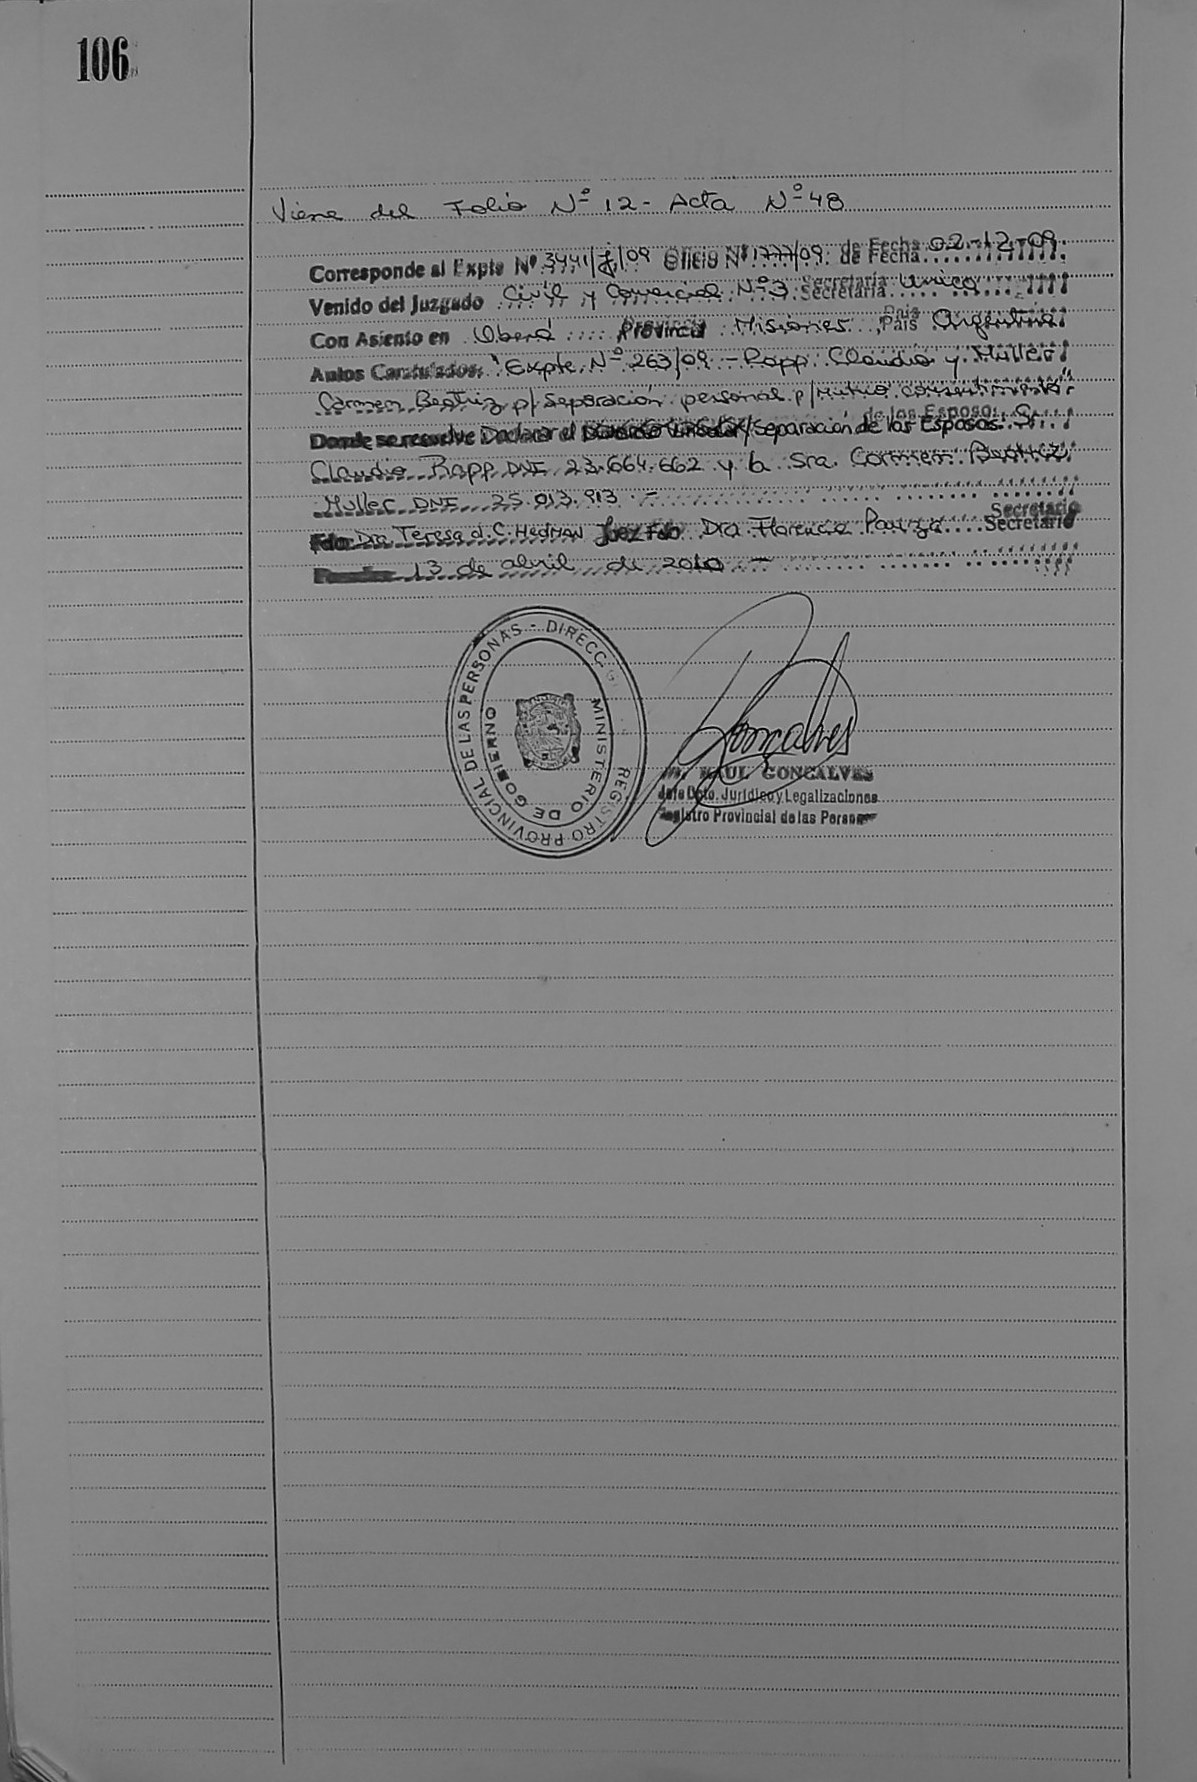 106
Viene del Folio Nº 12 - Acta Nº 48
Corresponde al Expte Nº 3441/ /09 Oficio Nº 1777/09. de Fecha 02-12-09
Venido del Juzgado Civil y Comercial Nº 3 Secretaria Unica
Con Asiento en Oberá Provincia Misiones. País Argentina
Autos Caratulados: "Expte. Nº 263/09 - Rapp Claudio y Muller
Carmen Beatriz p/ Separación personal p/ Mutuo consentimiento"
Donde se resuelve Declarar el Divorcio Vincular/Separación de los Esposos: Sr.
Claudio Rapp DNI 23.664.662 y la Sra. Carmen Beatriz
Muller DNI 25.013.913.-
Fdo Dra Teresa d. C. Hedman Juez Fdo Dra Florencia Secretario
13 de abril de 2010 -
REGISTRO PROVINCIAL DE LAS PERSONAS - DIRECC
MINISTERIO DE GOBIERNO
Gonçalves
RAUL GONCALVES
Jefe Dpto. Jurídico y Legalizaciones
Registro Provincial de las Personas